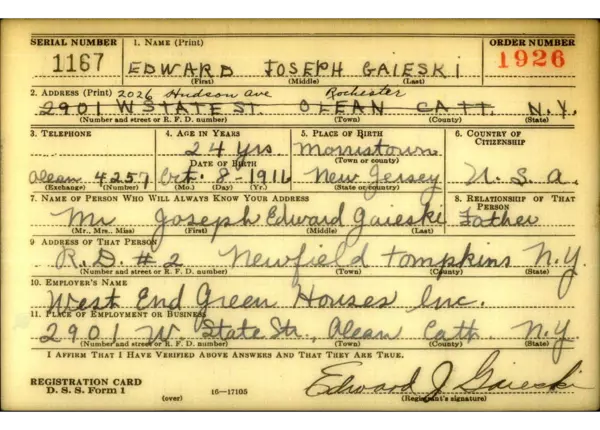 SERIAL NUMBER 1. NAME (Print) ORDER NUMBER
1167 EDWARD JOSEPH GAIESKI 1926
(First) (Middle) (Last)
2. ADDRESS (Print) 2026 Hudson Ave Rochester
2901 W STATE ST. OLEAN CATT. N.Y.
(Number and street or R. F. D. number) (Town) (County) (State)
3. TELEPHONE 4. AGE IN YEARS 5. PLACE OF BIRTH 6. COUNTRY OF CITIZENSHIP
24 yrs Morristown
DATE OF BIRTH (Town or county)
Olean 4257 Oct. 8-1916 New Jersey U.S.A.
(Exchange) (Number) (Mo.) (Day) (Yr.) (State or country)
7. NAME OF PERSON WHO WILL ALWAYS KNOW YOUR ADDRESS 8. RELATIONSHIP OF THAT PERSON
Mr Joseph Edward Gaieski Father
(Mr., Mrs., Miss) (First) (Middle) (Last)
9 ADDRESS OF THAT PERSON
R.D. #2 Newfield Tompkins N.Y.
(Number and street or R. F. D. number) (Town) (County) (State)
10. EMPLOYER'S NAME
West End Green Houses Inc.
11. PLACE OF EMPLOYMENT OR BUSINESS
2901 W. State Str., Olean Catt N.Y.
(Number and street or R. F. D. number) (Town) (County) (State)
I AFFIRM THAT I HAVE VERIFIED ABOVE ANSWERS AND THAT THEY ARE TRUE.
REGISTRATION CARD
D. S. S. Form 1 (over) 16—17105 Edward J Gaieski
(Registrant's signature)